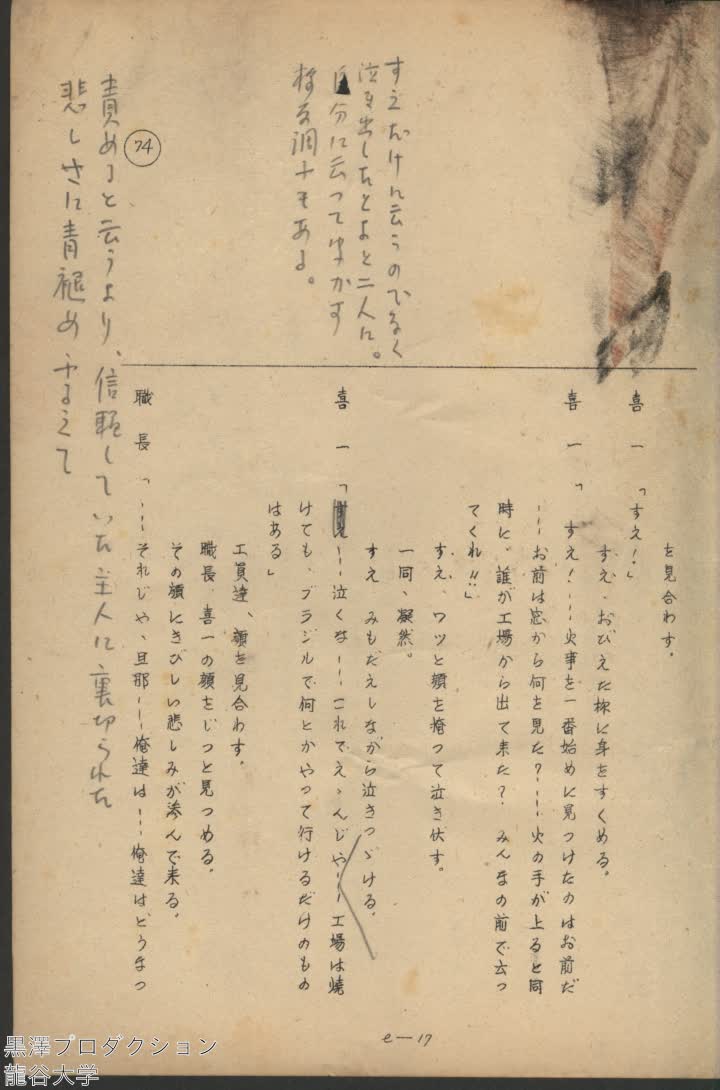 すえだけに云うのでなく
泣き出したとよと二人に。
自分に云ってゆかす
様な調子もある。
74
責めると云うより、信頼していた主人に裏切られた
悲しさに青褪め
を見合わす。
喜一「すえ!」
すえ、おびえた様に身をすくめる。
喜一「すえ!……火事を一番始めに見つけたのはお前だ
……お前は窓から何を見た?……火の手が上ると同
時に、誰が工場から出て来た? みんなの前で云っ
てくれ!!」
すえ、ワッと顔を掩って泣き伏す。
一同、凝然。
すえ みもだえしながら泣きつゞける。
喜一「すえ……泣くな……これでえゝんじゃ……工場は焼
けても、ブラジルで何とかやって行けるだけのもの
はある」
工員達、顔を見合わす。
職長、喜一の顔をじっと見つめる。
その顔にきびしい悲しみが滲んで来る。
職長「……それじゃ、旦那……俺達は……俺達はどうなっ
e—17
黒澤プロダクション
龍谷大学